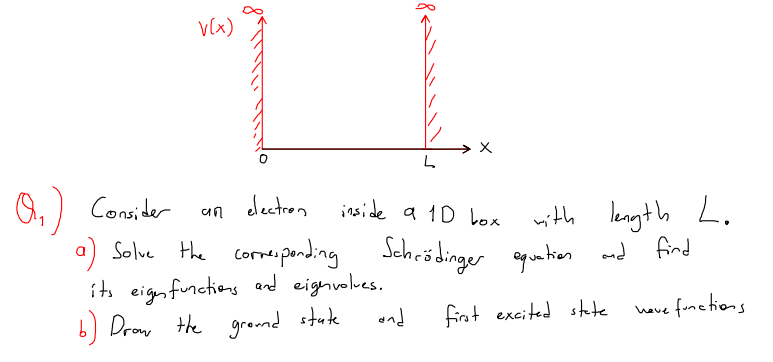 ∞ ∞
V(x)
x
0 L
Q1) Consider an electron inside a 1D box with length L.
a) Solve the corresponding Schrödinger equation and find
its eigenfunctions and eigenvalues.
b) Draw the ground state and first excited state wavefunctions